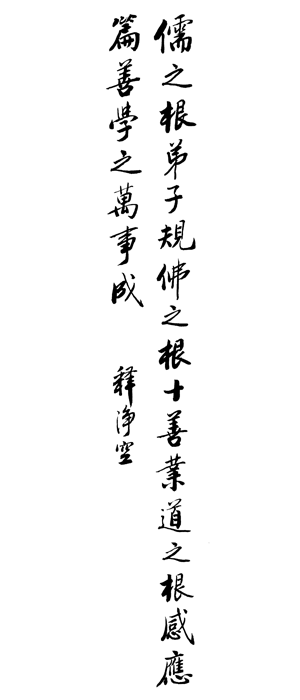 儒之根弟子規佛之根十善業道之根感應
篇善學之萬事成
释淨空